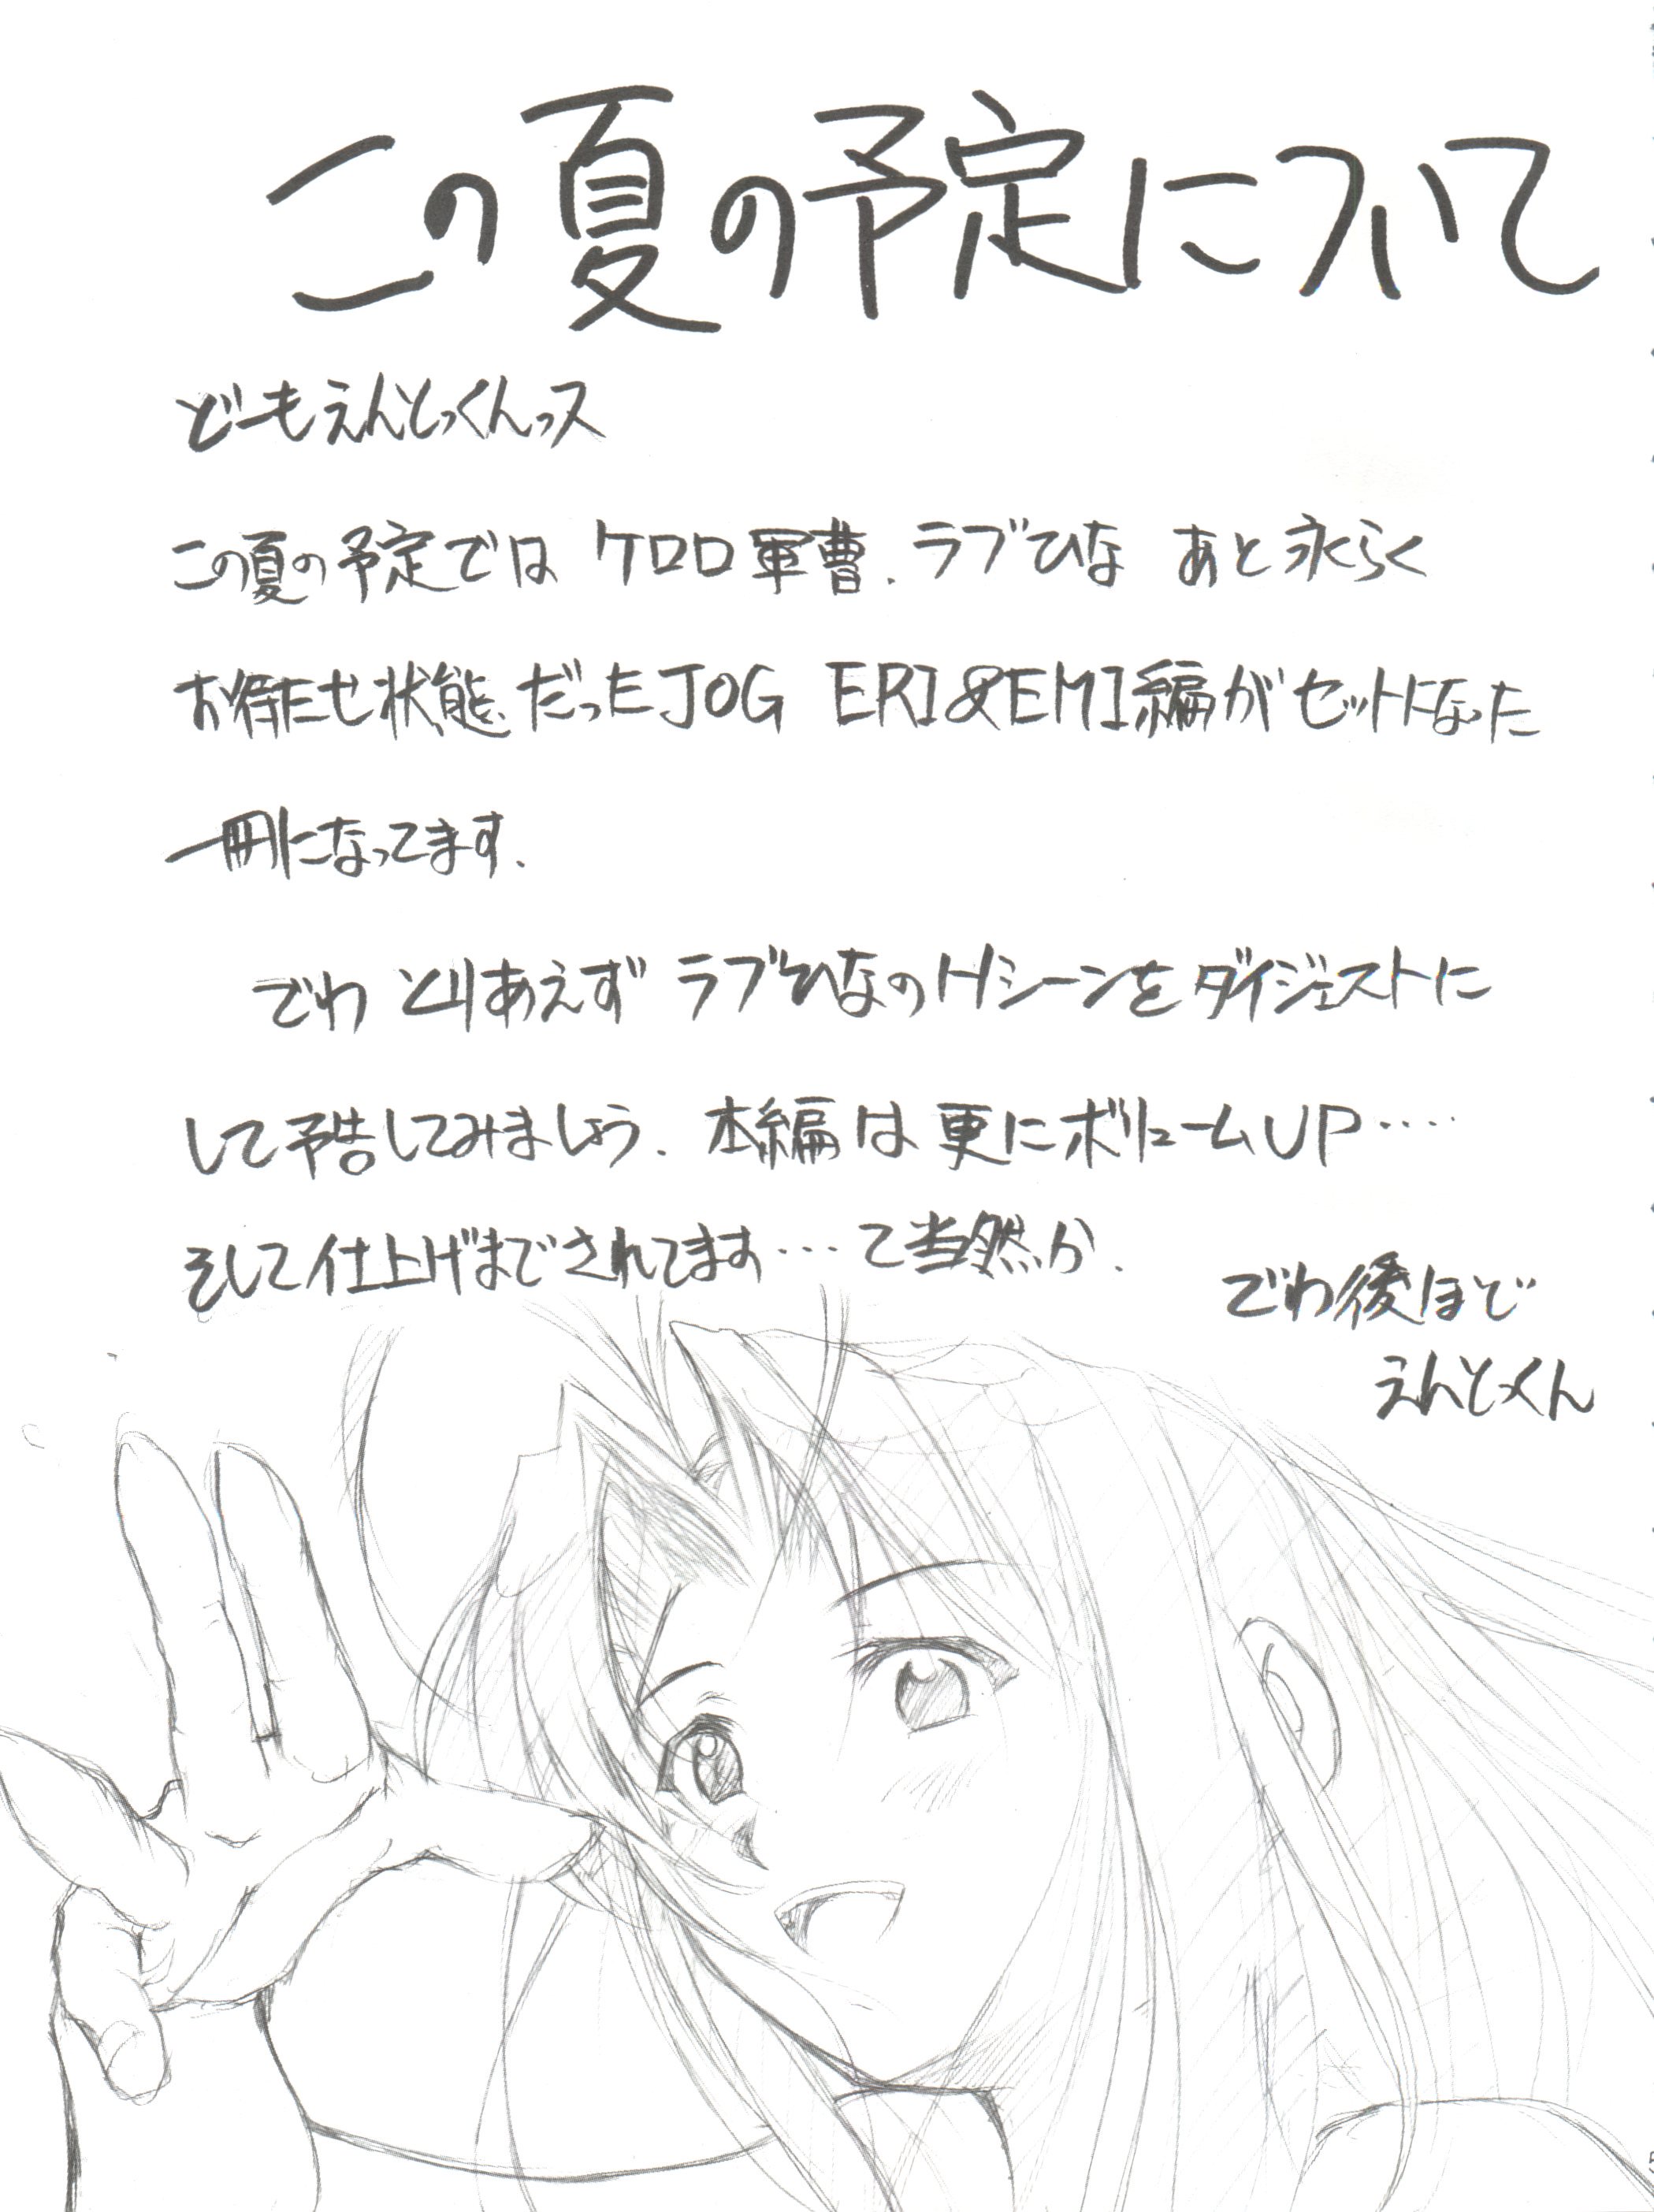 この夏の予定について
どーもえんとっくんっス
この夏の予定では ケロロ軍曹、ラブひな あと永らく
お待たせ状態だったJOG ERI&EMI編がセットになった
一冊になってます。
でわ とりあえず ラブひなのHシーンをダイジェストに
して予告してみましょう。本編は更にボリュームUP‥‥
そして仕上げまでされてます‥‥て当然か。
でわ後ほど
えんとっくん
5